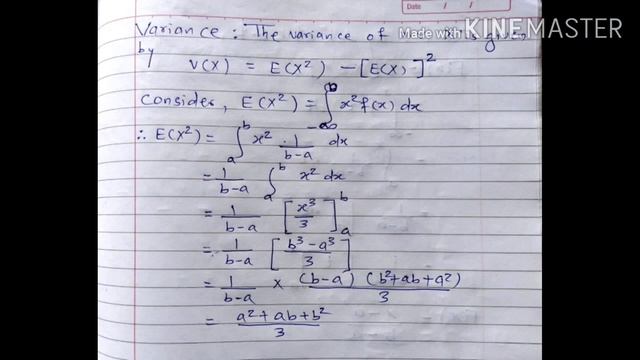 Date / /
Made with KINEMASTER
Variance : The variance of X is given
by
V(X) = E(X²) − [E(X)]²
Consider, E(X²) = ∫_{-∞}^{∞} x² f(x) dx
∴ E(X²) = ∫_a^b x² · 1/(b-a) dx
= 1/(b-a) ∫_a^b x² dx
= 1/(b-a) [x³/3]_a^b
= 1/(b-a) [(b³-a³)/3]
= 1/(b-a) × (b-a)(b²+ab+a²)/3
= (a²+ab+b²)/3